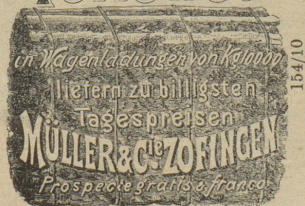 in Wagenladungen von Kg 10000
liefern zu billigsten
Tagespreisen
MÜLLER & Cie ZOFINGEN
Prospecte gratis & franco.
15410